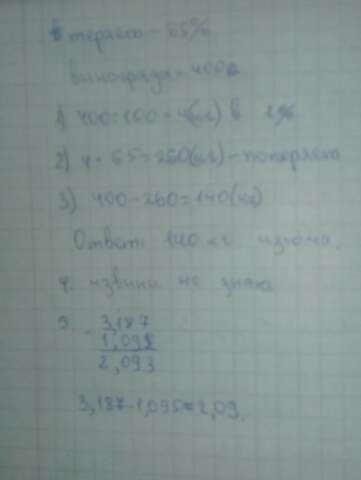 теряет - 65%
винограда - 400
1) 400:100=4(кг) в 1%
2) 4·65=260(кг) - потеряет
3) 400-260=140(кг)
Ответ: 140 кг изюма.
4. извини не знаю
5. - 3,187
1,09
2,093
3,187-1,095≈2,09.